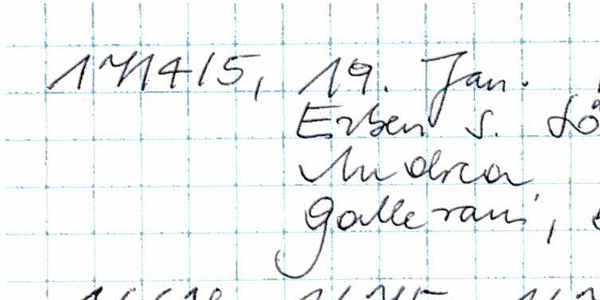 1414/5, 19. Jan.
Erben s.
Andrea
Gallerani,